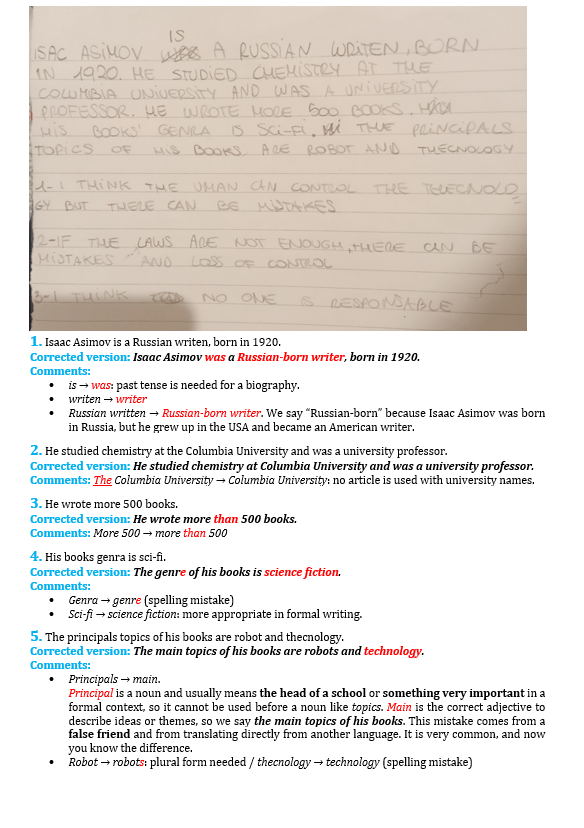 IS
ISAC ASIMOV A RUSSIAN WRITEN, BORN
IN 1920. HE STUDIED CHEMISTRY AT THE
COLUMBIA UNIVERSITY AND WAS A UNIVERSITY
PROFESSOR. HE WROTE MORE 500 BOOKS.
HIS BOOKS' GENRA IS SCI-FI. THE PRINCIPALS
TOPICS OF HIS BOOKS ARE ROBOT AND THECNOLOGY
1- I THINK THE UMAN CAN CONTROL THE TELECNOLO
GY BUT THERE CAN BE MISTAKES
2-IF THE LAWS ARE NOT ENOUGH, THERE CAN BE
MISTAKES AND LOSS OF CONTROL
3-I THINK NO ONE IS RESPONSABLE
1. Isaac Asimov is a Russian writen, born in 1920.
Corrected version: Isaac Asimov was a Russian-born writer, born in 1920.
Comments:
• is → was: past tense is needed for a biography.
• writen → writer
• Russian written → Russian-born writer. We say “Russian-born” because Isaac Asimov was born
in Russia, but he grew up in the USA and became an American writer.
2. He studied chemistry at the Columbia University and was a university professor.
Corrected version: He studied chemistry at Columbia University and was a university professor.
Comments: The Columbia University → Columbia University: no article is used with university names.
3. He wrote more 500 books.
Corrected version: He wrote more than 500 books.
Comments: More 500 → more than 500
4. His books genra is sci-fi.
Corrected version: The genre of his books is science fiction.
Comments:
• Genra → genre (spelling mistake)
• Sci-fi → science fiction: more appropriate in formal writing.
5. The principals topics of his books are robot and thecnology.
Corrected version: The main topics of his books are robots and technology.
Comments:
• Principals → main.
Principal is a noun and usually means the head of a school or something very important in a
formal context, so it cannot be used before a noun like topics. Main is the correct adjective to
describe ideas or themes, so we say the main topics of his books. This mistake comes from a
false friend and from translating directly from another language. It is very common, and now
you know the difference.
• Robot → robots: plural form needed / thecnology → technology (spelling mistake)